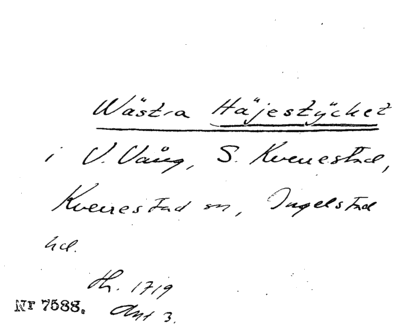 Wästra Häjestÿcket
i V. Vång, S. Kverrestad,
Kverrestad sn, Ingelstad
hd.
Hh. 1719
Akt 3.
Nr 7588.